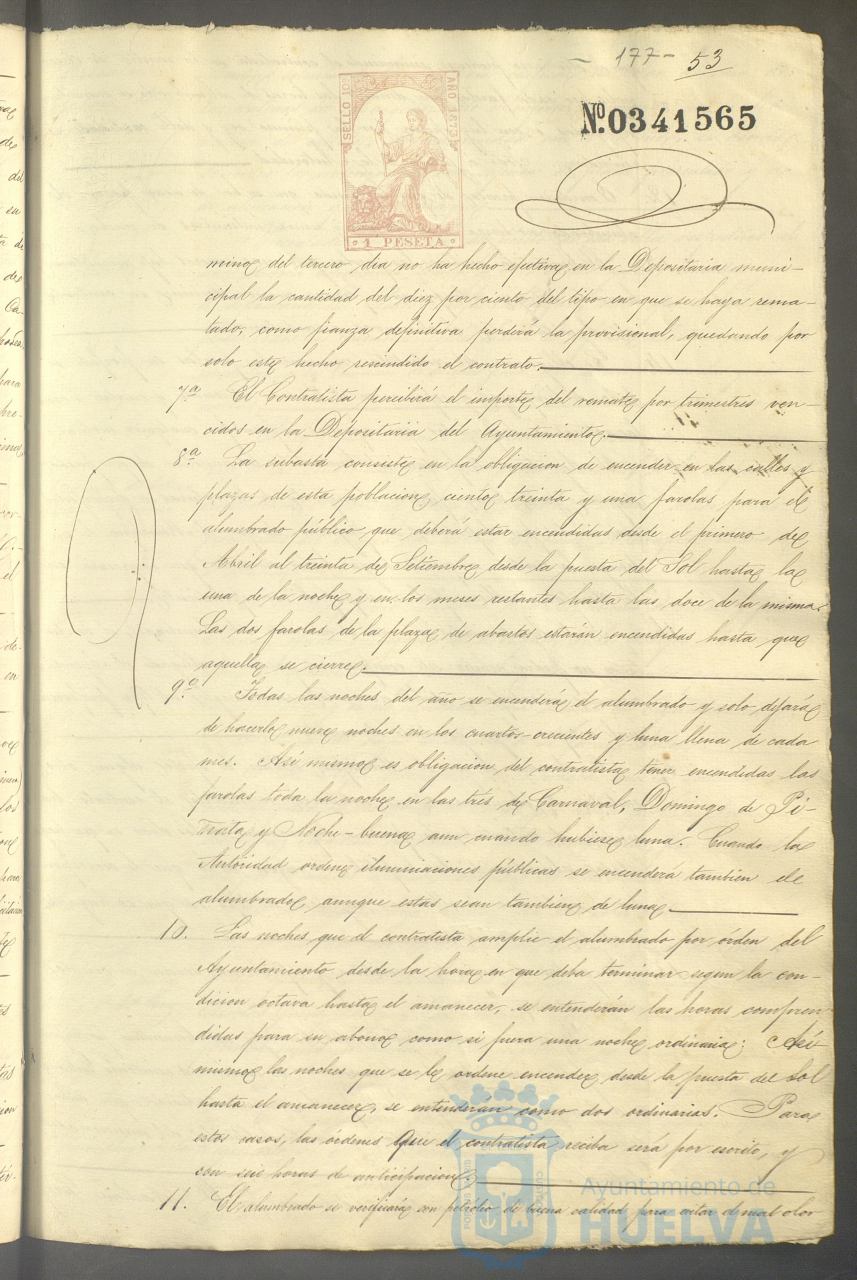 - 177 - 53
SELLO 10º AÑO 1873
1 PESETA
Nº. 0341565
mino del tercero dia no ha hecho efectiva en la Depositaria muni-
cipal la cantidad del diez por ciento del tipo en que se haya rema-
tado, como fianza definitiva perderá la provisional, quedando por
solo este hecho rescindido el contrato.
7ª El Contratista percibirá el importe del remate por trimestres ven-
cidos en la Depositaria del Ayuntamiento.
8ª La subasta consiste en la obligacion de encender en las calles y
plazas de esta poblacion ciento treinta y una farolas para el
alumbrado público, que deberá estar encendidas desde el primero de
Abril al treinta de Setiembre desde la puesta del Sol hasta la
una de la noche y en los meses restantes hasta las doce de la misma.
Las dos farolas de la plaza de abastos estarán encendidas hasta que
aquella se cierre.
9ª Todas las noches del año se encenderá el alumbrado y solo dejará
de hacerlo nueve noches en los cuartos-crecientes y luna llena de cada
mes. Así mismo es obligacion del contratista tener encendidas las
farolas toda la noche en las tres de Carnaval, Domingo de Pi-
ñata y Noche-buena aun cuando hubiese luna. Cuando la
Autoridad ordene iluminaciones públicas se encenderá tambien el
alumbrado, aunque estas sean tambien de luna
10. Las noches que el contratista amplie el alumbrado por órden del
Ayuntamiento desde la hora en que deba terminar segun la con-
dicion octava hasta el amanecer, se entenderán las horas compren-
didas para su abono como si fuera una noche ordinaria: Así
mismo las noches que se le ordene encender desde la puesta del Sol
hasta el amanecer, se entenderán como dos ordinarias. Para
estos casos, las órdenes que el contratista reciba será por escrito, y
con seis horas de anticipacion.
11. El alumbrado se verificará con petróleo de buena calidad para evitar de mal olor
Ayuntamiento de
HUELVA